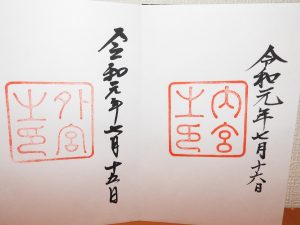 令和元年七月十六日
内宮之印
令和元年七月十五日
外宮之印